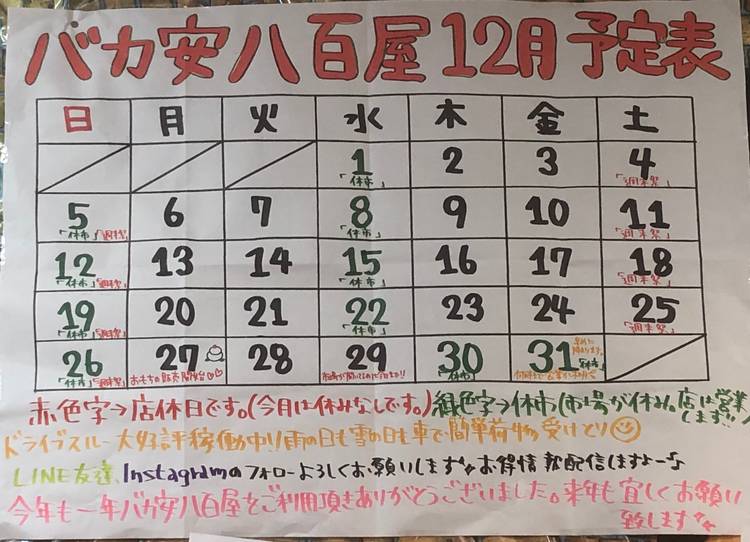 バカ安八百屋 12月 予定表
日 月 火 水 木 金 土
1 2 3 4
「休市」 「週末祭」
5 6 7 8 9 10 11
「休市」「週末祭」 「休市」 「週末祭」
12 13 14 15 16 17 18
「休市」「週末祭」 「休市」 「週末祭」
19 20 21 22 23 24 25
「休市」「週末祭」 「休市」 「週末祭」
26 27 28 29 30 31
「休市」「週末祭」 おもちの販売開始 「休市」
赤色字→店休日です。(今月は休みなしです。)緑色字→休市(市場が休み。店は営業
します!!
ドライブスルー大好評稼働中!!雨の日も雪の日も車で簡単荷物受けとり
LINE友達、Instagramのフォローよろしくお願いします お得情報配信しますよーな
今年も一年バカ安八百屋をご利用頂きありがとうございました。来年も宜しくお願い
致します